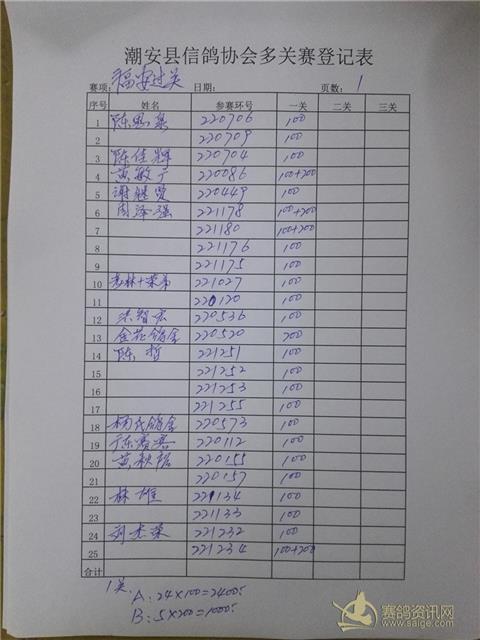 潮安县信鸽协会多关赛登记表
赛项: 福安过关 日期: 页数: 1
序号 姓名 参赛环号 一关 二关 三关
1 陈恩泉 220706 100
2 220709 100
3 陈佳辉 220704 100
4 黄敏广 220086 100+200
5 谢继贤 220449 100
6 周泽强 221178 100+200
7 221180 100+200
8 221176 100
9 221175 100
10 221027 100
11 220120 100
12 洪智宏 220536 100
13 金花鸽舍 220520 200
14 陈哲 221251 100
15 221252 100
16 221253 100
17 221255 100
18 杨氏鸽舍 220573 100
19 220112 100
20 220155 100
21 220157 100
22 林雄 221134 100
23 221133 100
24 刘光荣 221232 100
25 221234 100+200
合计
1关.
A: 24×100=2400
B: 5×200=1000
赛鸽资讯网
www.saige.com